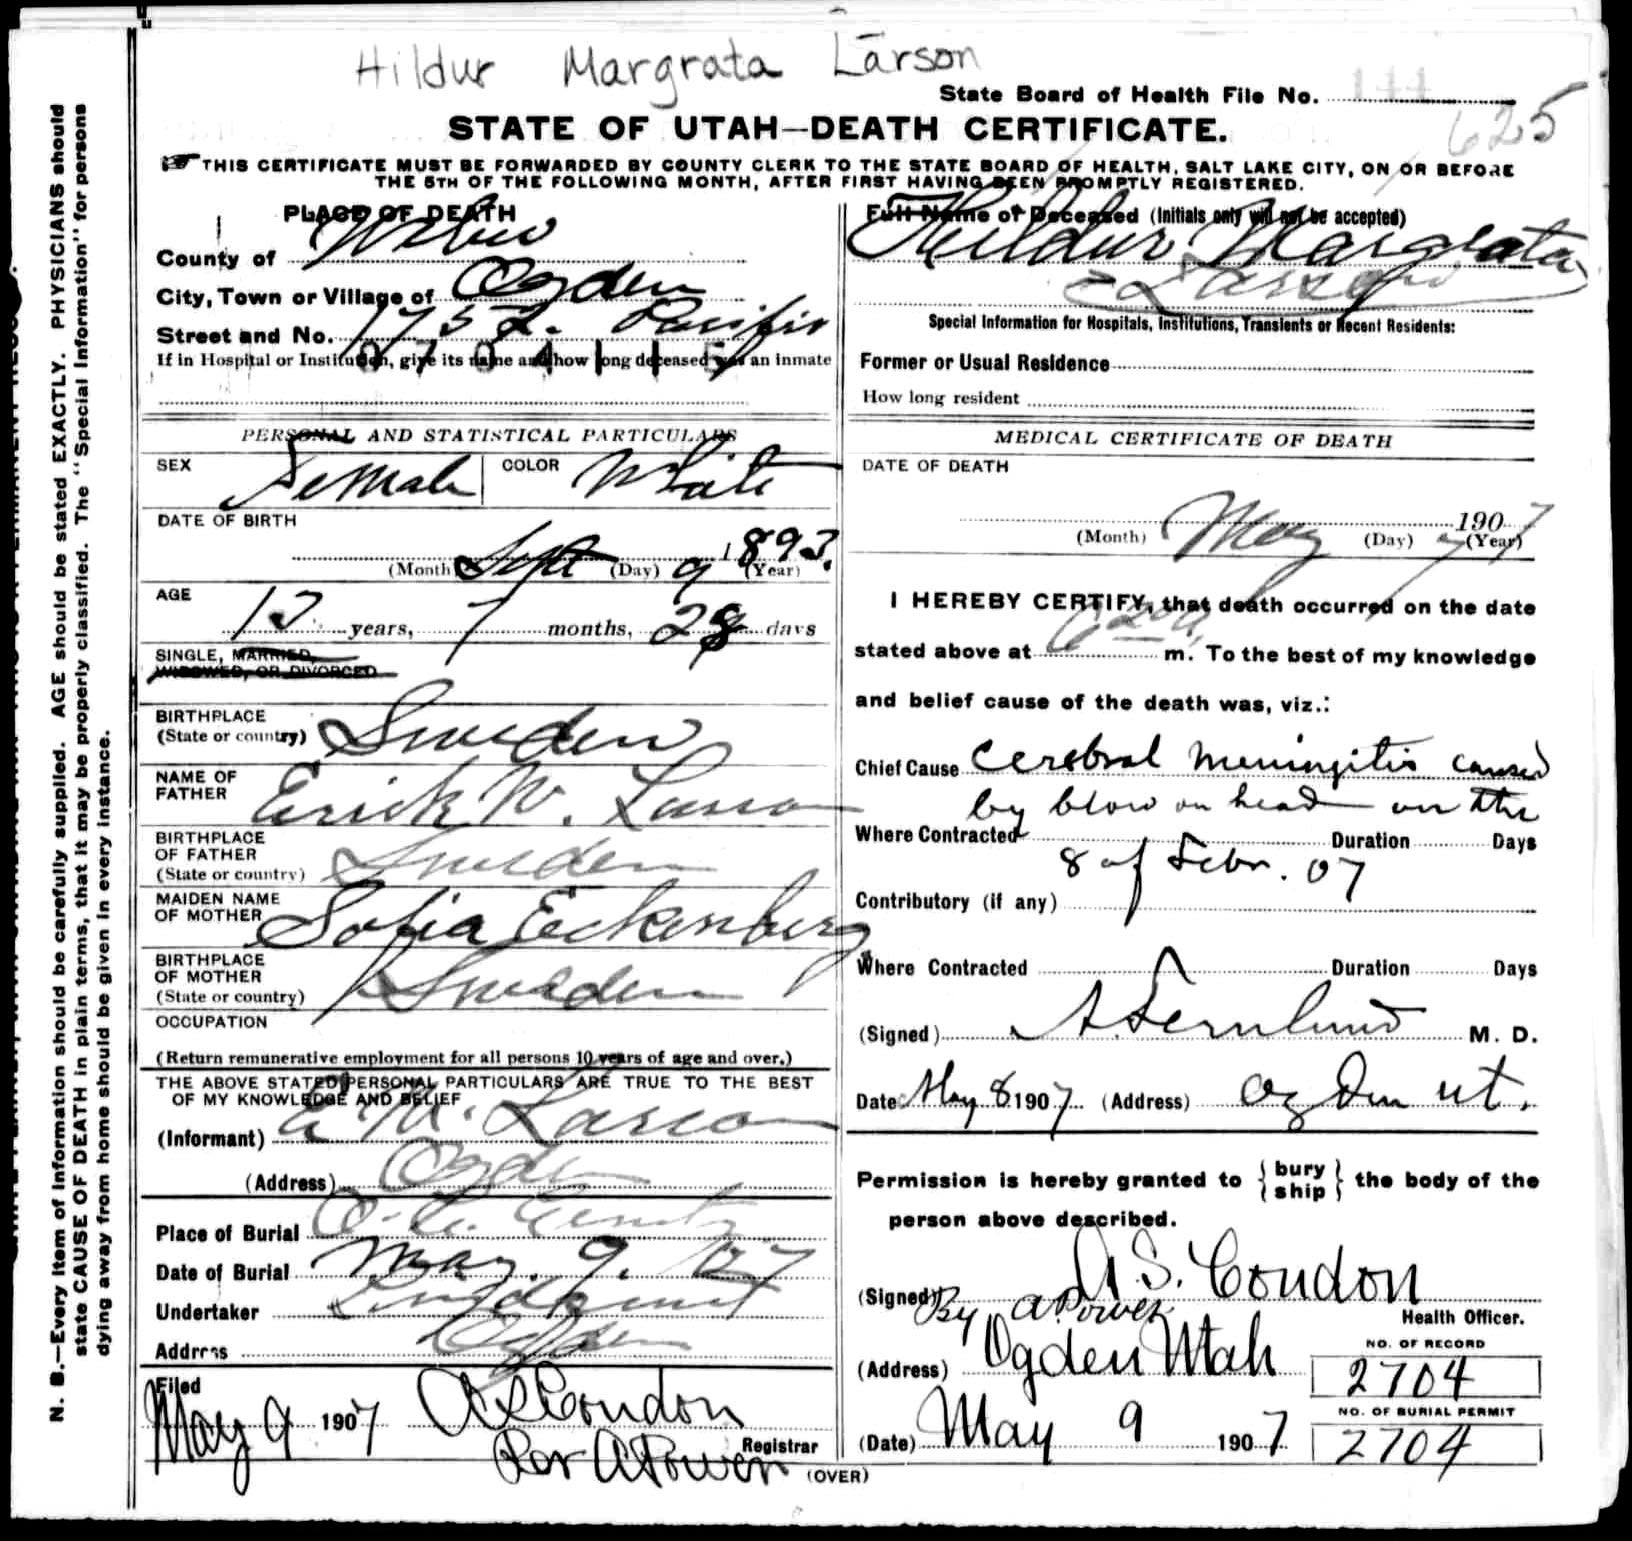 Hildur Margrata Larson
State Board of Health File No. 144
625
STATE OF UTAH—DEATH CERTIFICATE.
THIS CERTIFICATE MUST BE FORWARDED BY COUNTY CLERK TO THE STATE BOARD OF HEALTH, SALT LAKE CITY, ON OR BEFORE
THE 5TH OF THE FOLLOWING MONTH, AFTER FIRST HAVING BEEN PROMPTLY REGISTERED.
PLACE OF DEATH
County of Weber
City, Town or Village of Ogden
Street and No. 1752 Pacific
If in Hospital or Institution, give its name and how long deceased was an inmate
0704115
PERSONAL AND STATISTICAL PARTICULARS
SEX Female COLOR White
DATE OF BIRTH
(Month) Sept (Day) 9 1893 (Year)
AGE
13 years, 7 months, 28 days
SINGLE, MARRIED,
WIDOWED, OR DIVORCED
BIRTHPLACE
(State or country) Sweden
NAME OF
FATHER Erick W. Larson
BIRTHPLACE
OF FATHER
(State or country) Sweden
MAIDEN NAME
OF MOTHER Sofia Eckenberg
BIRTHPLACE
OF MOTHER
(State or country) Sweden
OCCUPATION
(Return remunerative employment for all persons 10 years of age and over.)
THE ABOVE STATED PERSONAL PARTICULARS ARE TRUE TO THE BEST
OF MY KNOWLEDGE AND BELIEF
(Informant) E. W. Larson
(Address) Ogden
Place of Burial
Date of Burial May. 9. 1907
Undertaker
Address Ogden
Filed
May 9 1907 A S Condon
Per A Power Registrar
(OVER)
Full Name of Deceased (Initials only will not be accepted)
Hildur Margrata
Larson
Special Information for Hospitals, Institutions, Transients or Recent Residents:
Former or Usual Residence
How long resident
MEDICAL CERTIFICATE OF DEATH
DATE OF DEATH
(Month) May (Day) 7 1907 (Year)
I HEREBY CERTIFY, that death occurred on the date
stated above at 620 a m. To the best of my knowledge
and belief cause of the death was, viz.:
Chief Cause Cerebral Meningitis caused
by blow on head on the
Where Contracted Duration Days
8 of Febr. 07
Contributory (if any)
Where Contracted Duration Days
(Signed) A Fernlund M. D.
Date May 8 1907 (Address) Ogden Ut.
Permission is hereby granted to {bury ship} the body of the
person above described.
(Signed) A. S. Condon
By A Power Health Officer.
(Address) Ogden Utah
NO. OF RECORD
2704
NO. OF BURIAL PERMIT
2704
(Date) May 9 1907
N. B.—Every item of information should be carefully supplied. AGE should be stated EXACTLY. PHYSICIANS should
state CAUSE OF DEATH in plain terms, that it may be properly classified. The "Special Information" for persons
dying away from home should be given in every instance.